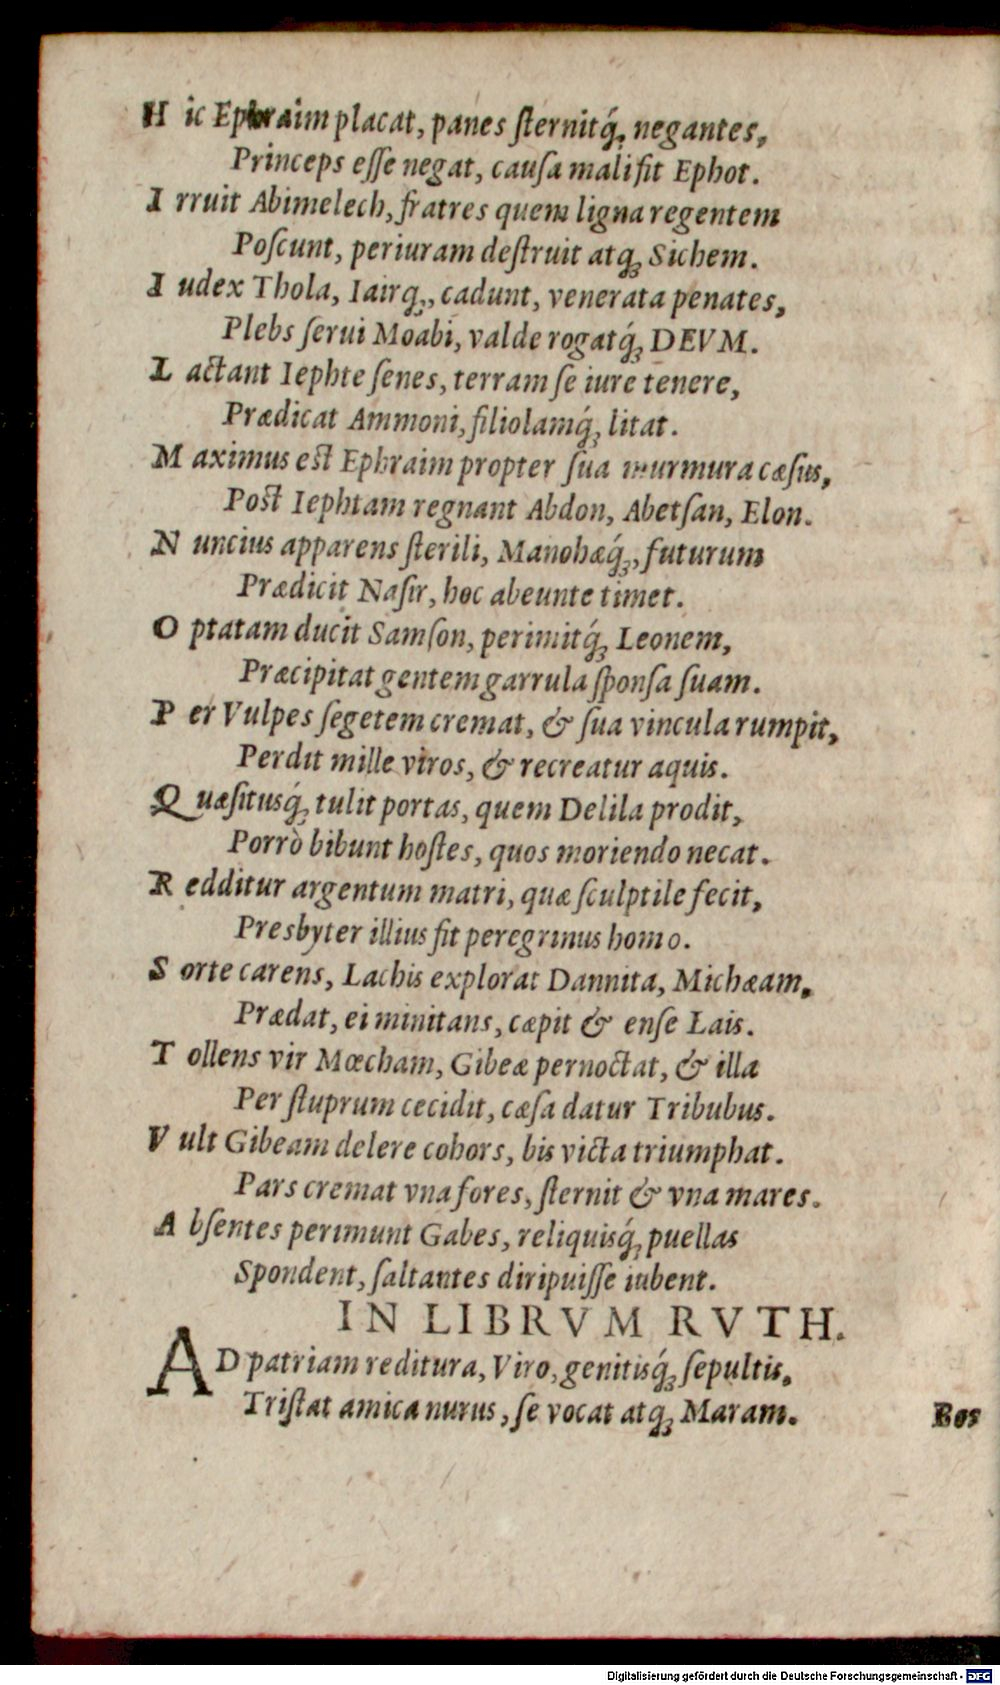 H ic Ephraim placat, panes ſternitq́; negantes,
Princeps eſſe negat, cauſa mali fit Ephot.
I rruit Abimelech, fratres quem ligna regentem
Poſcunt, periuram deſtruit atq; Sichem.
I udex Thola, Iairq;, cadunt, venerata penates,
Plebs ſerui Moabi, valde rogatq́; DEVM.
L actant Iephte ſenes, terram ſe iure tenere,
Prædicat Ammoni, filiolamq́; litat.
M aximus eſt Ephraim propter ſua murmura cæſus,
Poſt Iephtam regnant Abdon, Abetſan, Elon.
N uncius apparens ſterili, Manohæq́;, futurum
Prædicit Naſir, hoc abeunte timet.
O ptatam ducit Samſon, perimitq́; Leonem,
Præcipitat gentem garrula ſponſa ſuam.
P er Vulpes ſegetem cremat, & ſua vincula rumpit,
Perdit mille viros, & recreatur aquis.
Q uæſitusq́; tulit portas, quem Delila prodit,
Porrò bibunt hoſtes, quos moriendo necat.
R edditur argentum matri, quæ ſculptile fecit,
Presbyter illius fit peregrinus homo.
S orte carens, Lachis explorat Dannita, Michæam,
Prædat, ei minitans, cæpit & enſe Lais.
T ollens vir Mœcham, Gibeæ pernoctat, & illa
Per ſtuprum cecidit, cæſa datur Tribubus.
V ult Gibeam delere cohors, bis victa triumphat.
Pars cremat vna fores, ſternit & vna mares.
A bſentes perimunt Gabes, reliquisq́; puellas
Spondent, ſaltantes diripuiſſe iubent.
IN LIBRVM RVTH.
AD patriam reditura, Viro, genitisq́; ſepultis,
Triſtat amica nurus, ſe vocat atq; Maram.
Bos
Digitalisierung gefördert durch die Deutsche Forschungsgemeinschaft - DFG